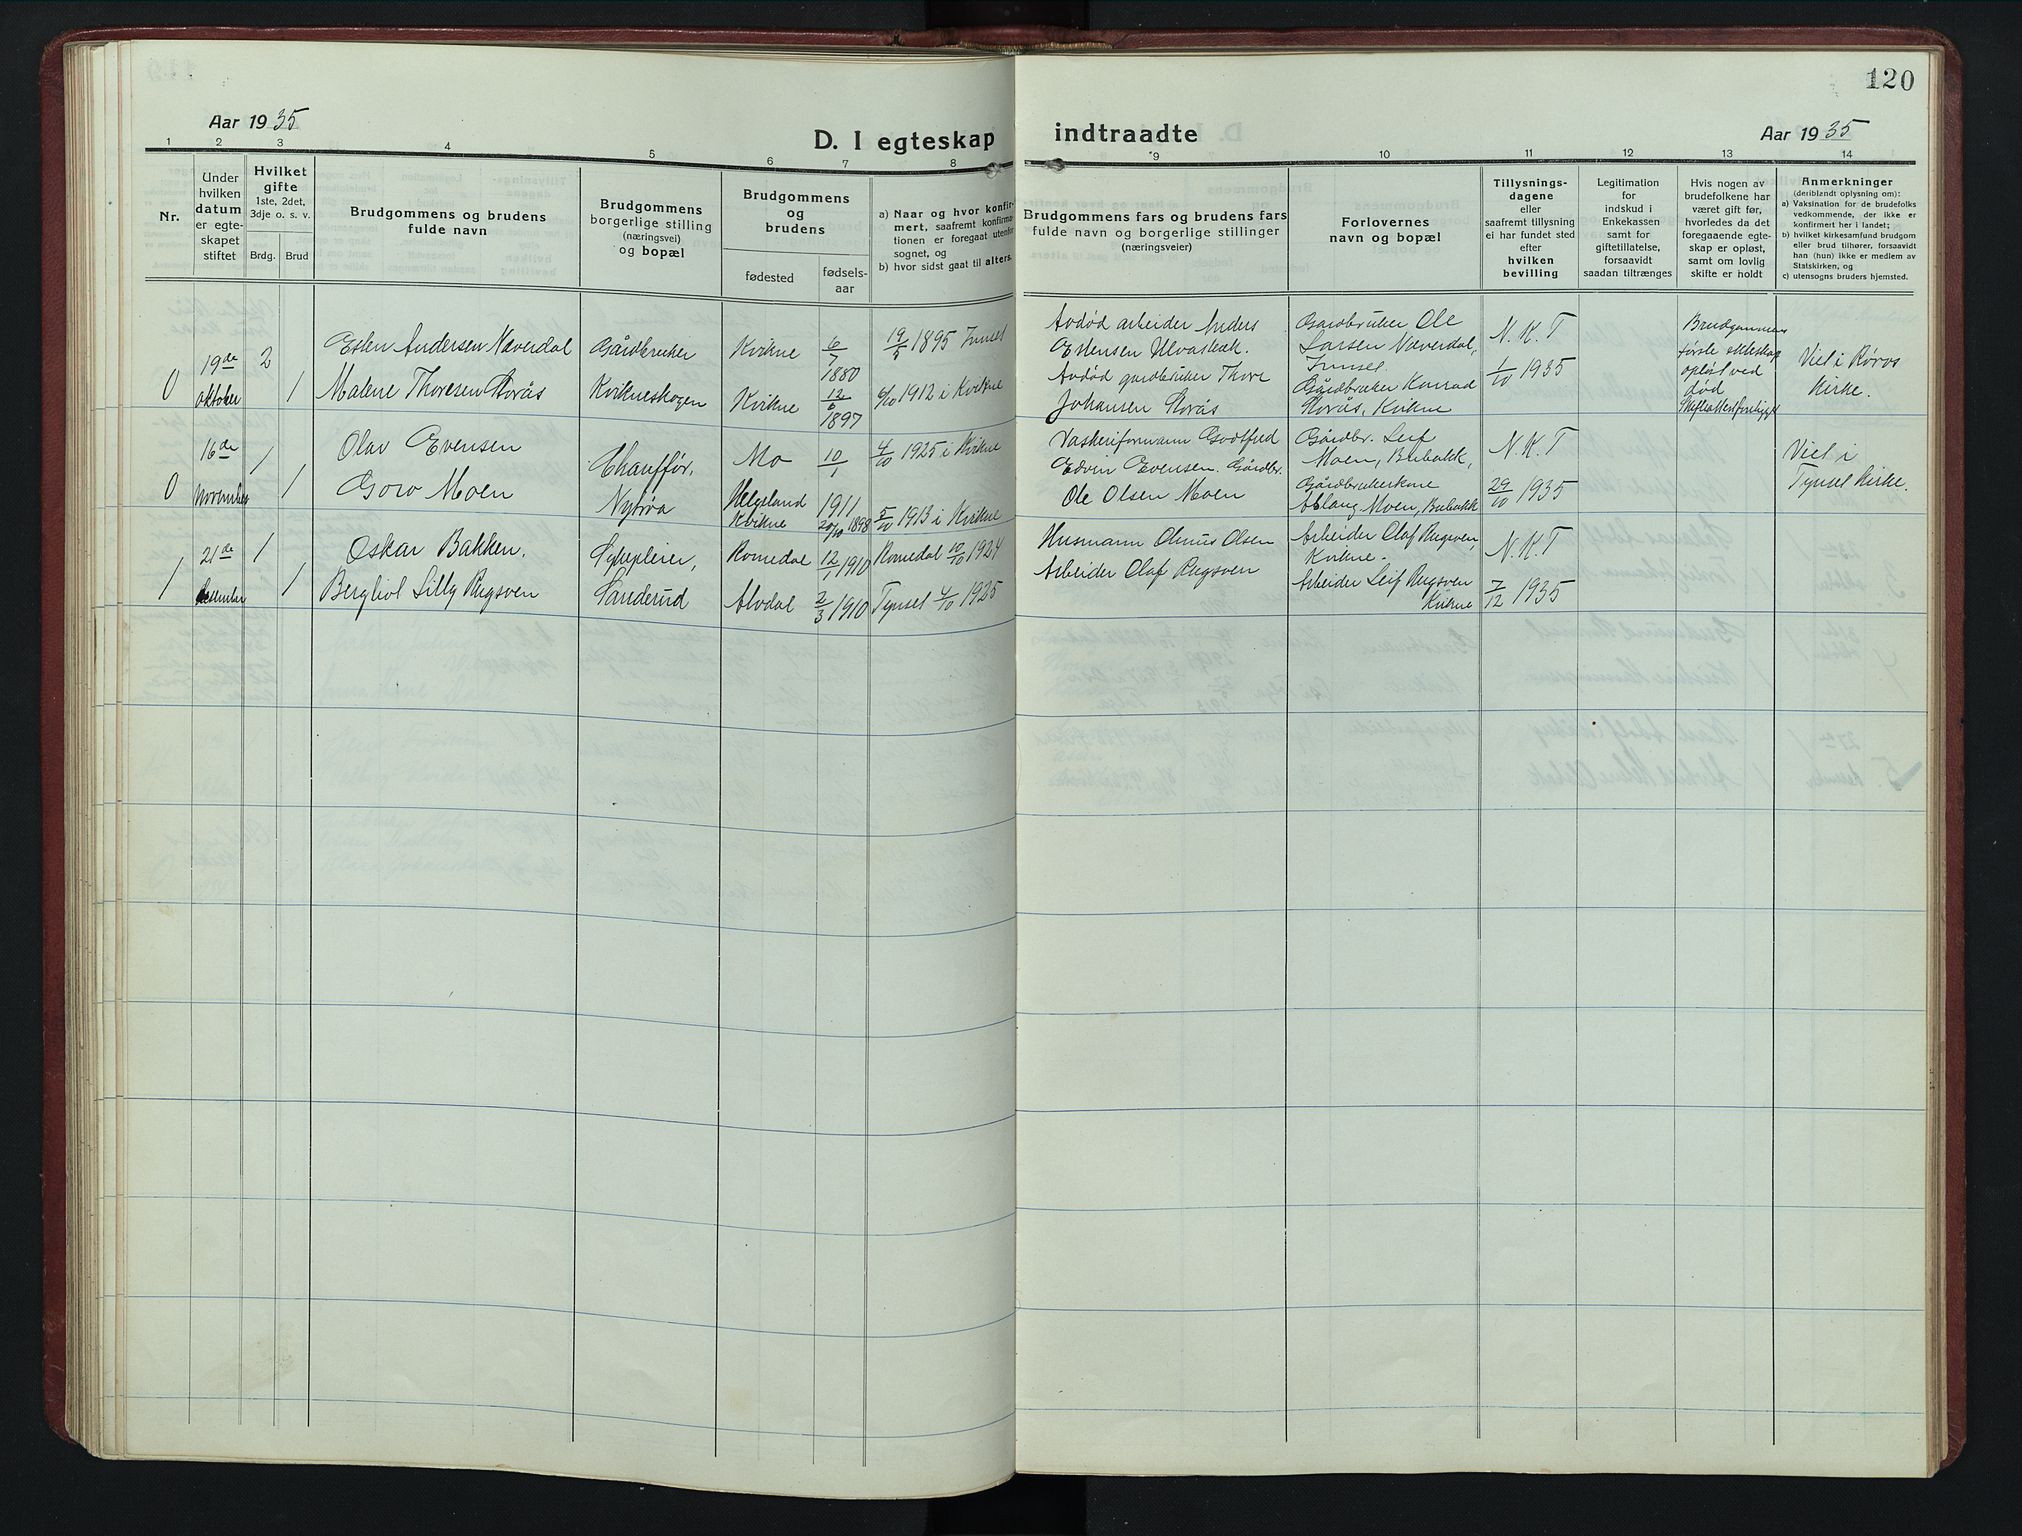 120
Aar 1935
D. I egteskap indtraadte
Aar 1935
1 2 3 4 5 6 7 8 9 10 11 12 13 14
Nr.
Under
hvilken
datum
er egte-
skapet
stiftet
Hvilket
gifte
1ste, 2det,
3dje o. s. v.
Brdg. Brud
Brudgommens og brudens
fulde navn
Brudgommens
borgerlige stilling
(næringsvei)
og bopæl
Brudgommens
og
brudens
fødested
fødsels-
aar
a) Naar og hvor konfir-
mert, saafremt konfirma-
tionen er foregaat utenfor
sognet, og
b) hvor sidst gaat til alters.
Brudgommens fars og brudens fars
fulde navn og borgerlige stillinger
(næringsveier)
Forlovernes
navn og bopæl
Tillysnings-
dagene
eller
saafremt tillysning
ei har fundet sted
efter
hvilken
bevilling
Legitimation
for
indskud i
Enkekassen
samt for
giftetillatelse,
forsaavidt
saadan tiltrænges
Hvis nogen av
brudefolkene har
været gift før,
hvorledes da det
foregaaende egte-
skap er opløst,
samt om lovlig
skifte er holdt
Anmerkninger
(deriblandt oplysning om):
a) Vaksination for de brudefolks
vedkommende, der ikke er
konfirmert her i landet;
b) hvilket kirkesamfund brudgom
eller brud tilhører, forsaavidt
han (hun) ikke er medlem av
Statskirken, og
c) utensogns bruders hjemsted.
0
19de
oktober
2
1
Esten Andersen Næverdal
Malene Thoresen Storås
Gårdbruker
Kvikneskogen
Kvikne
6/7
1880
Kvikne
12/6
1897
19/5 1895 Innset
6/10 1912 i Kvikne
Avdød arbeider Anders
Estensen Ulvasbak.
Avdød gardbruker Thore
Johansen Storås
Gardbruker Ole
Larsen Næverdal,
Innset.
Gårdbruker Konrad
Storås, Kvikne
N. K. T
1/10 1935
Brudgommens
første ekteskap
opløst ved
død
Skifteattest foreligger
Viet i Røros
Kirke.
0
16de
November
1
1
Olav Evensen
Goro Moen
Chauffør,
Nytrøa
Mo
Helgeland
10/1
1911
Kvikne
20/10 1898
4/10 1925 i Kvikne
5/10 1913 i Kvikne
Vaskeriformann Godtfred
Edvin Evensen. Gårdbr.
Ole Olsen Moen
Gårdbr. Leif
Moen, Bubakk,
Gårdbrukerkone
Aslaug Moen, Bubakk
N. K. T
29/10 1935
Viet i
Tynset Kirke.
1
21de
desember
1
1
Oskar Bakken.
Bergliot Lilly Rugsven
Sykepleier,
Sanderud
Romedal
12/1 1910
Alvdal
2/3 1910
Romedal 10/10 1924
Tynset 4/10 1925
Husmann Olinus Olsen
Arbeider Olaf Rugsven
Arbeider Olaf Rugsven,
Kvikne.
Arbeider Leif Rugsven
Kvikne
N. K. T
7/12 1935